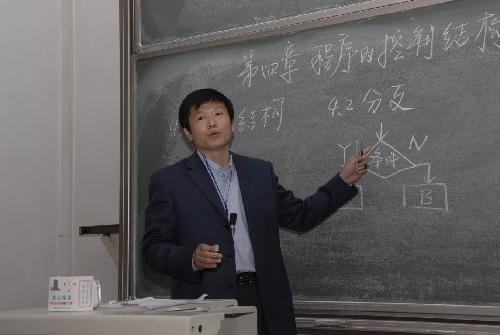 第四章 程序的控制结构
4. 结构 4.2 分支
Y 条件 N
B